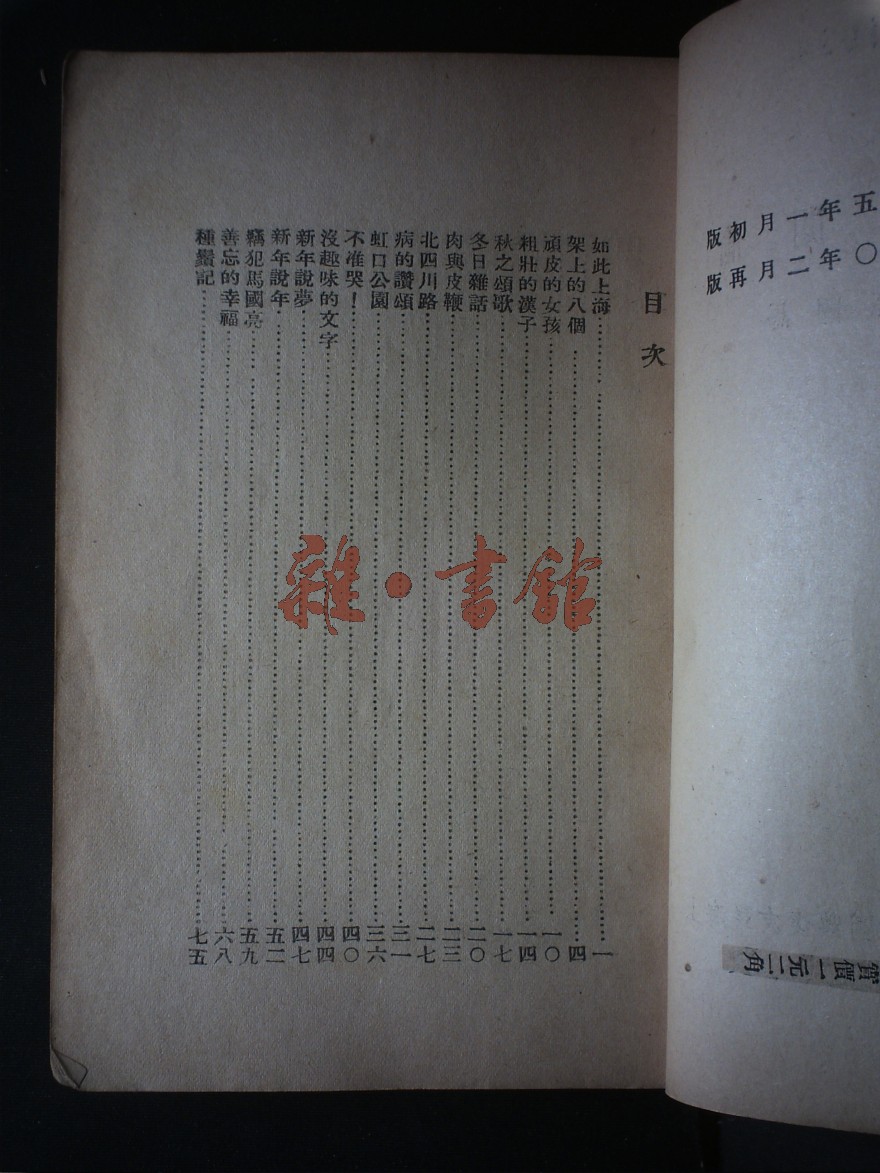 五年一月初版
〇年二月再版
實價一元二角
目次
如此上海……一
架上的八個……四
頑皮的女孩……一〇
粗壯的漢子……一四
秋之頌歌……一七
冬日雜話……二〇
肉與皮鞭……二三
北四川路……二七
病的讚頌……三一
虹口公園……三六
不准哭！……四〇
沒趣味的文字……四四
新年說夢……四七
新年說年……五二
羈犯馬國亮……五九
善忘的幸福……六八
種鬚記……七五
雜·書館